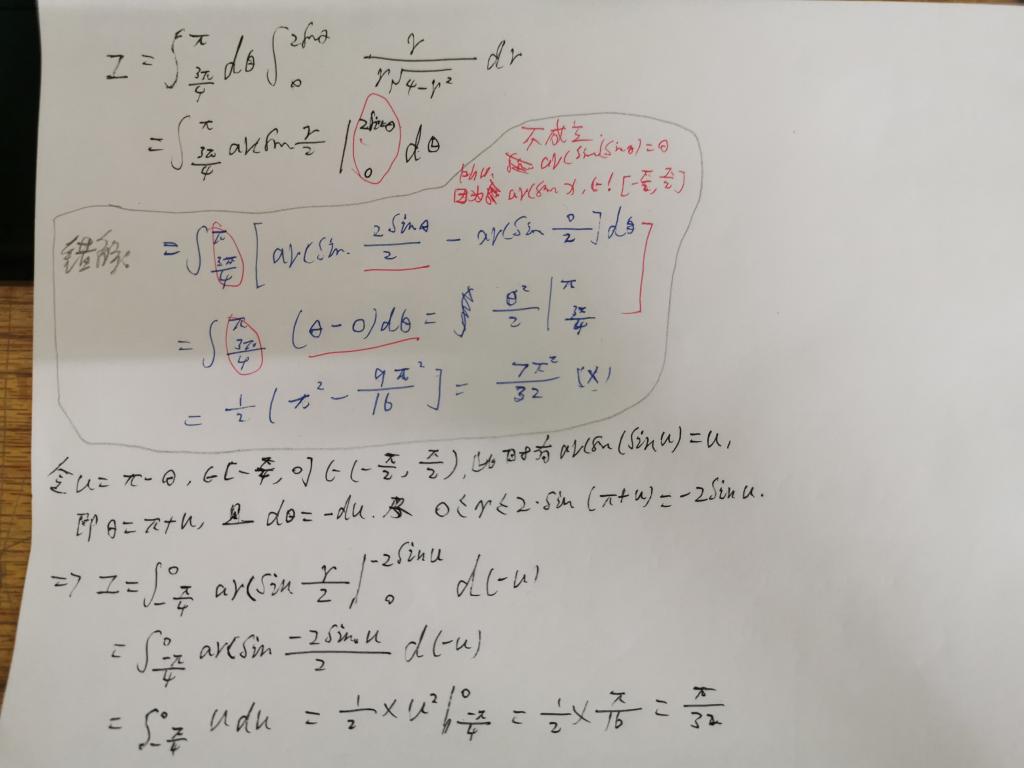 I = ∫_{3π/4}^{π} dθ ∫_0^{2sinθ} r/(r√(4-r²)) dr
= ∫_{3π/4}^{π} arcsin r/2 |_0^{2sinθ} dθ
不成立
arcsin(sinθ)=θ
因为 arcsin x, ∈! [-π/2, π/2]
错解: = ∫_{3π/4}^{π} [arcsin 2sinθ/2 - arcsin 0/2] dθ
= ∫_{3π/4}^{π} (θ-0)dθ = θ²/2 |_{3π/4}^{π}
= 1/2 [π² - 9π²/16] = 7π²/32 (×)
令u=π-θ, ∈[-π/4, 0] ∈(-π/2, π/2), arcsin(sinu)=u,
即θ=π+u, 且 dθ=-du. 0≤r≤2·sin(π+u)=-2sinu.
=> I = ∫_{-π/4}^0 arcsin r/2 |_0^{-2sinu} d(-u)
= ∫_{-π/4}^0 arcsin -2sinu/2 d(-u)
= ∫_{-π/4}^0 u du = 1/2 × u² |_{-π/4}^0 = 1/2 × π/16 = π/32